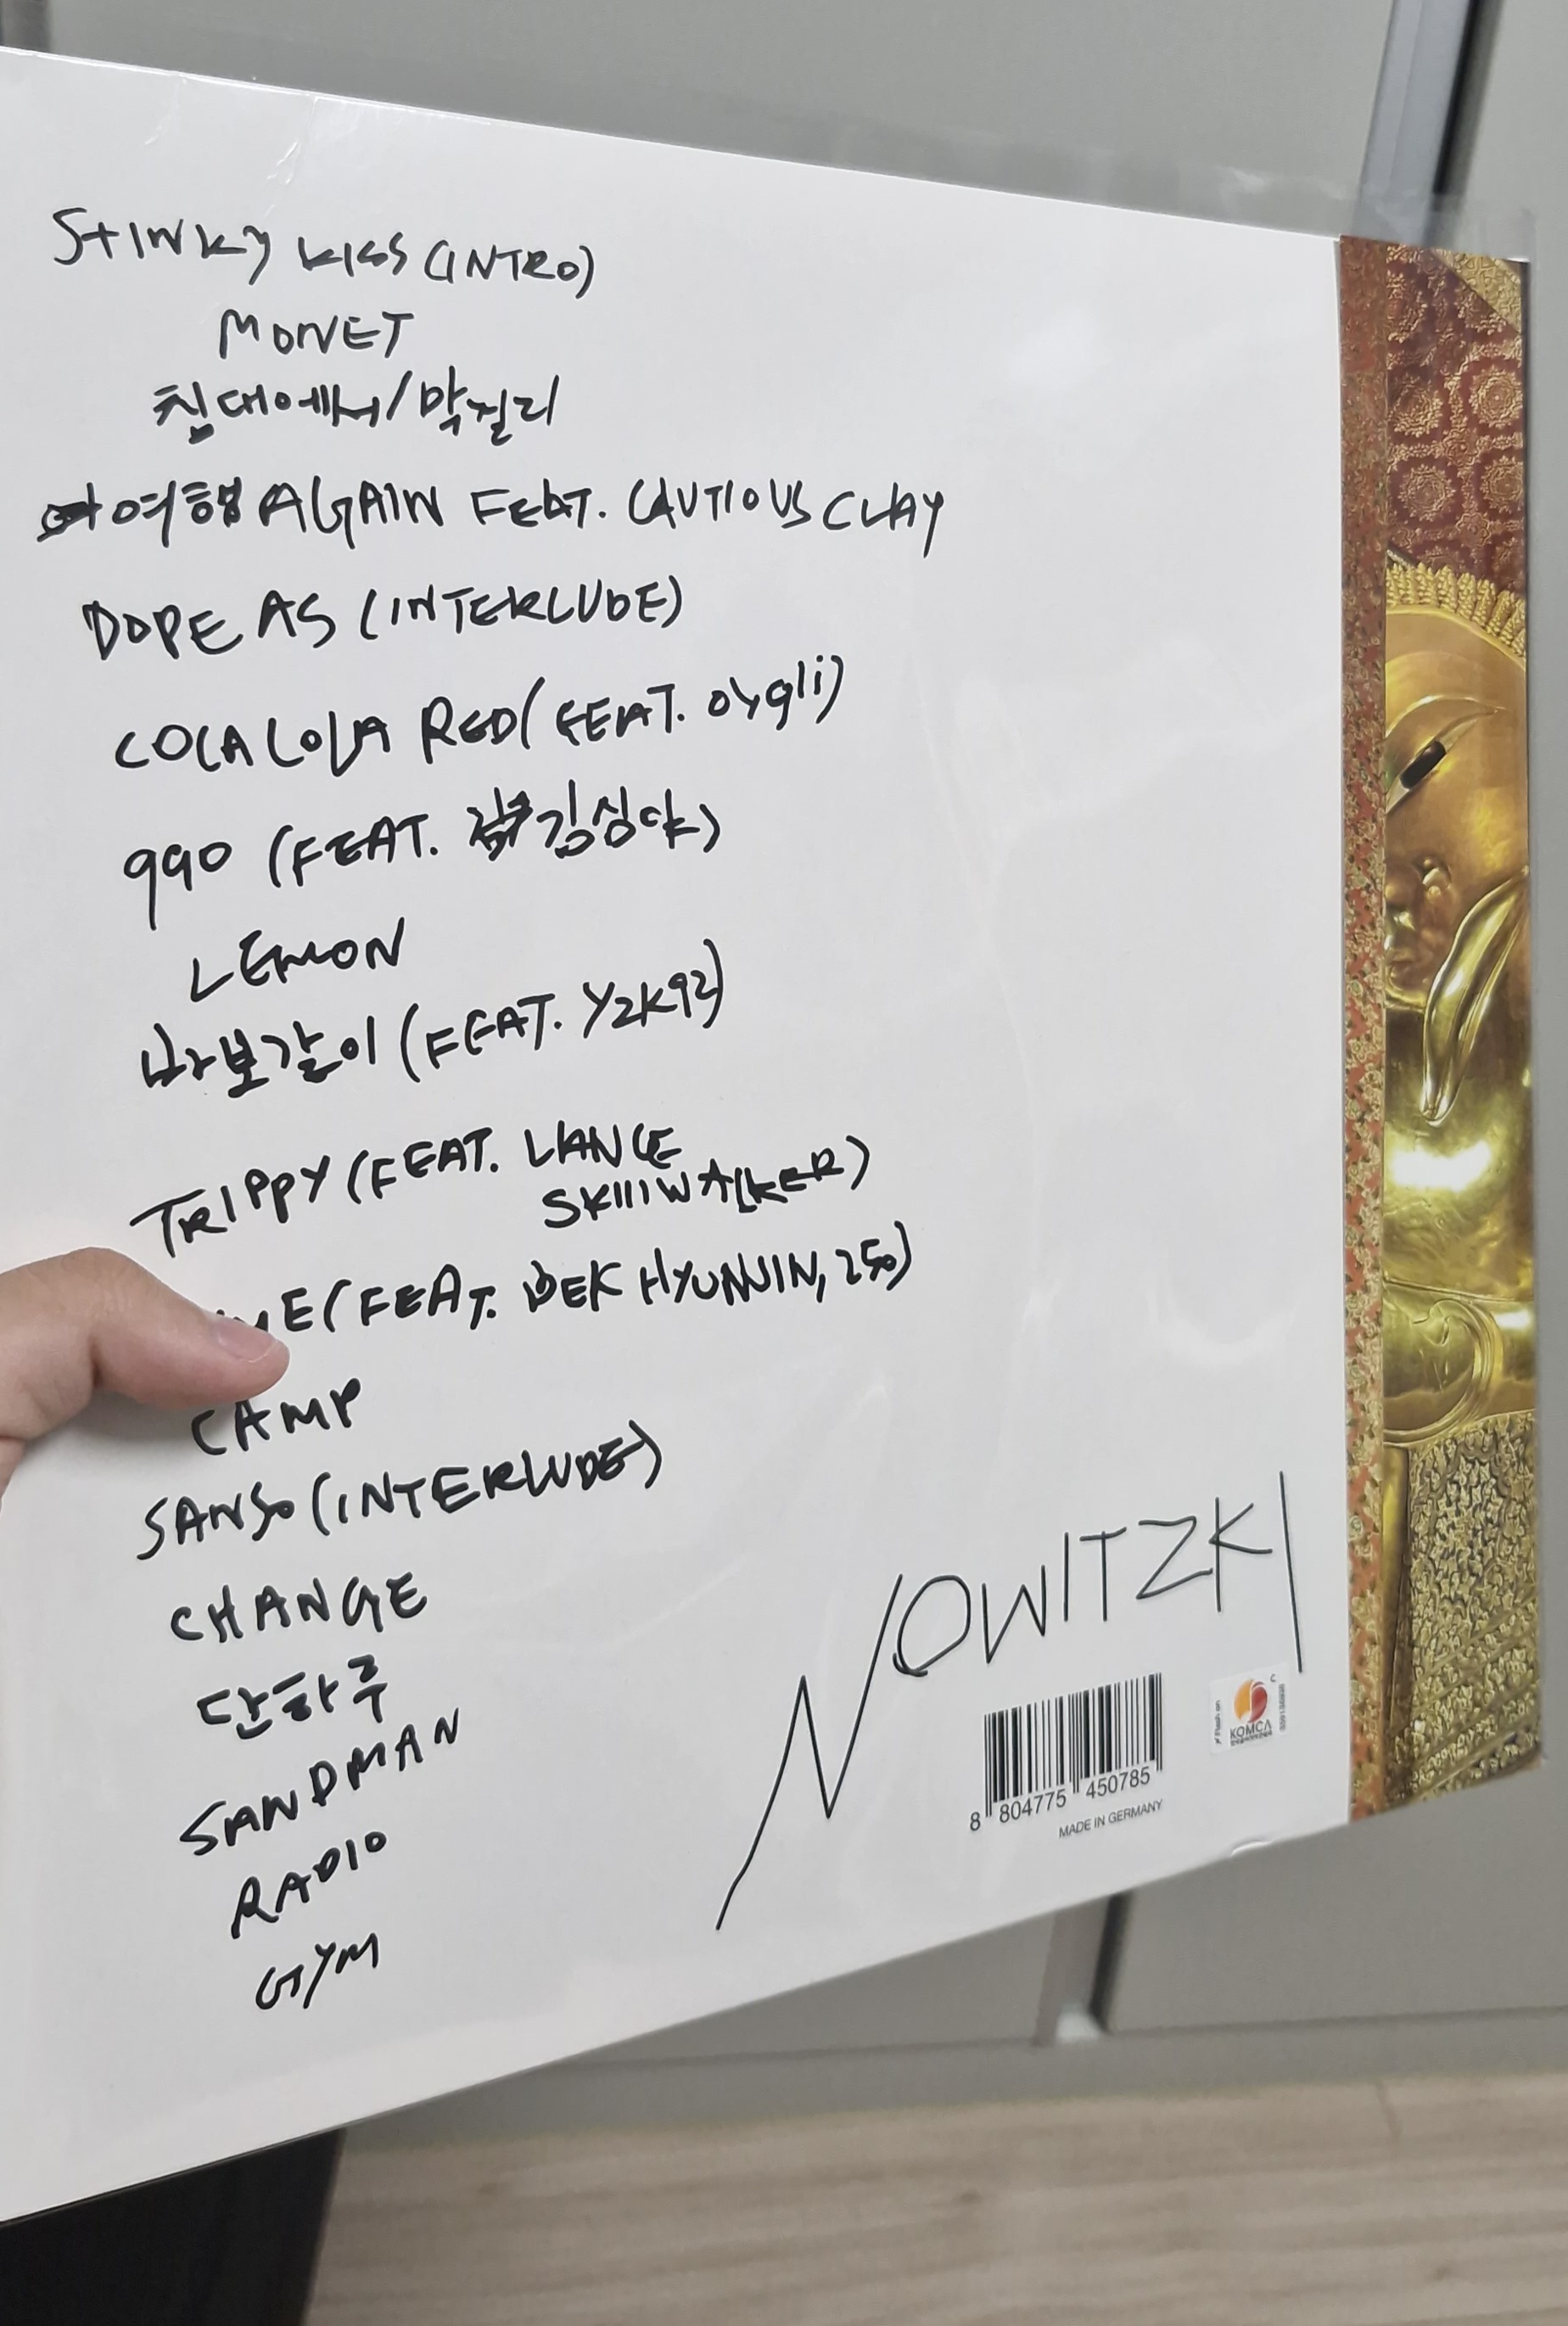 STINKY KISS (INTRO)
MONET
침대에서/막걸리
여행 AGAIN FEAT. CAUTIOUS CLAY
DOPE AS (INTERLUDE)
COCA COLA RED (FEAT. oygli)
990 (FEAT. 김심야)
LEMON
바보같이 (FEAT. Y2K92)
TRIPPY (FEAT. LANCE
SKIIIWALKER)
E (FEAT. BEK HYUNJIN, 250)
CAMP
SANSO (INTERLUDE)
CHANGE
단하루
SANDMAN
RADIO
GYM
NOWITZKI
8 804775 450785
MADE IN GERMANY
KOMCA